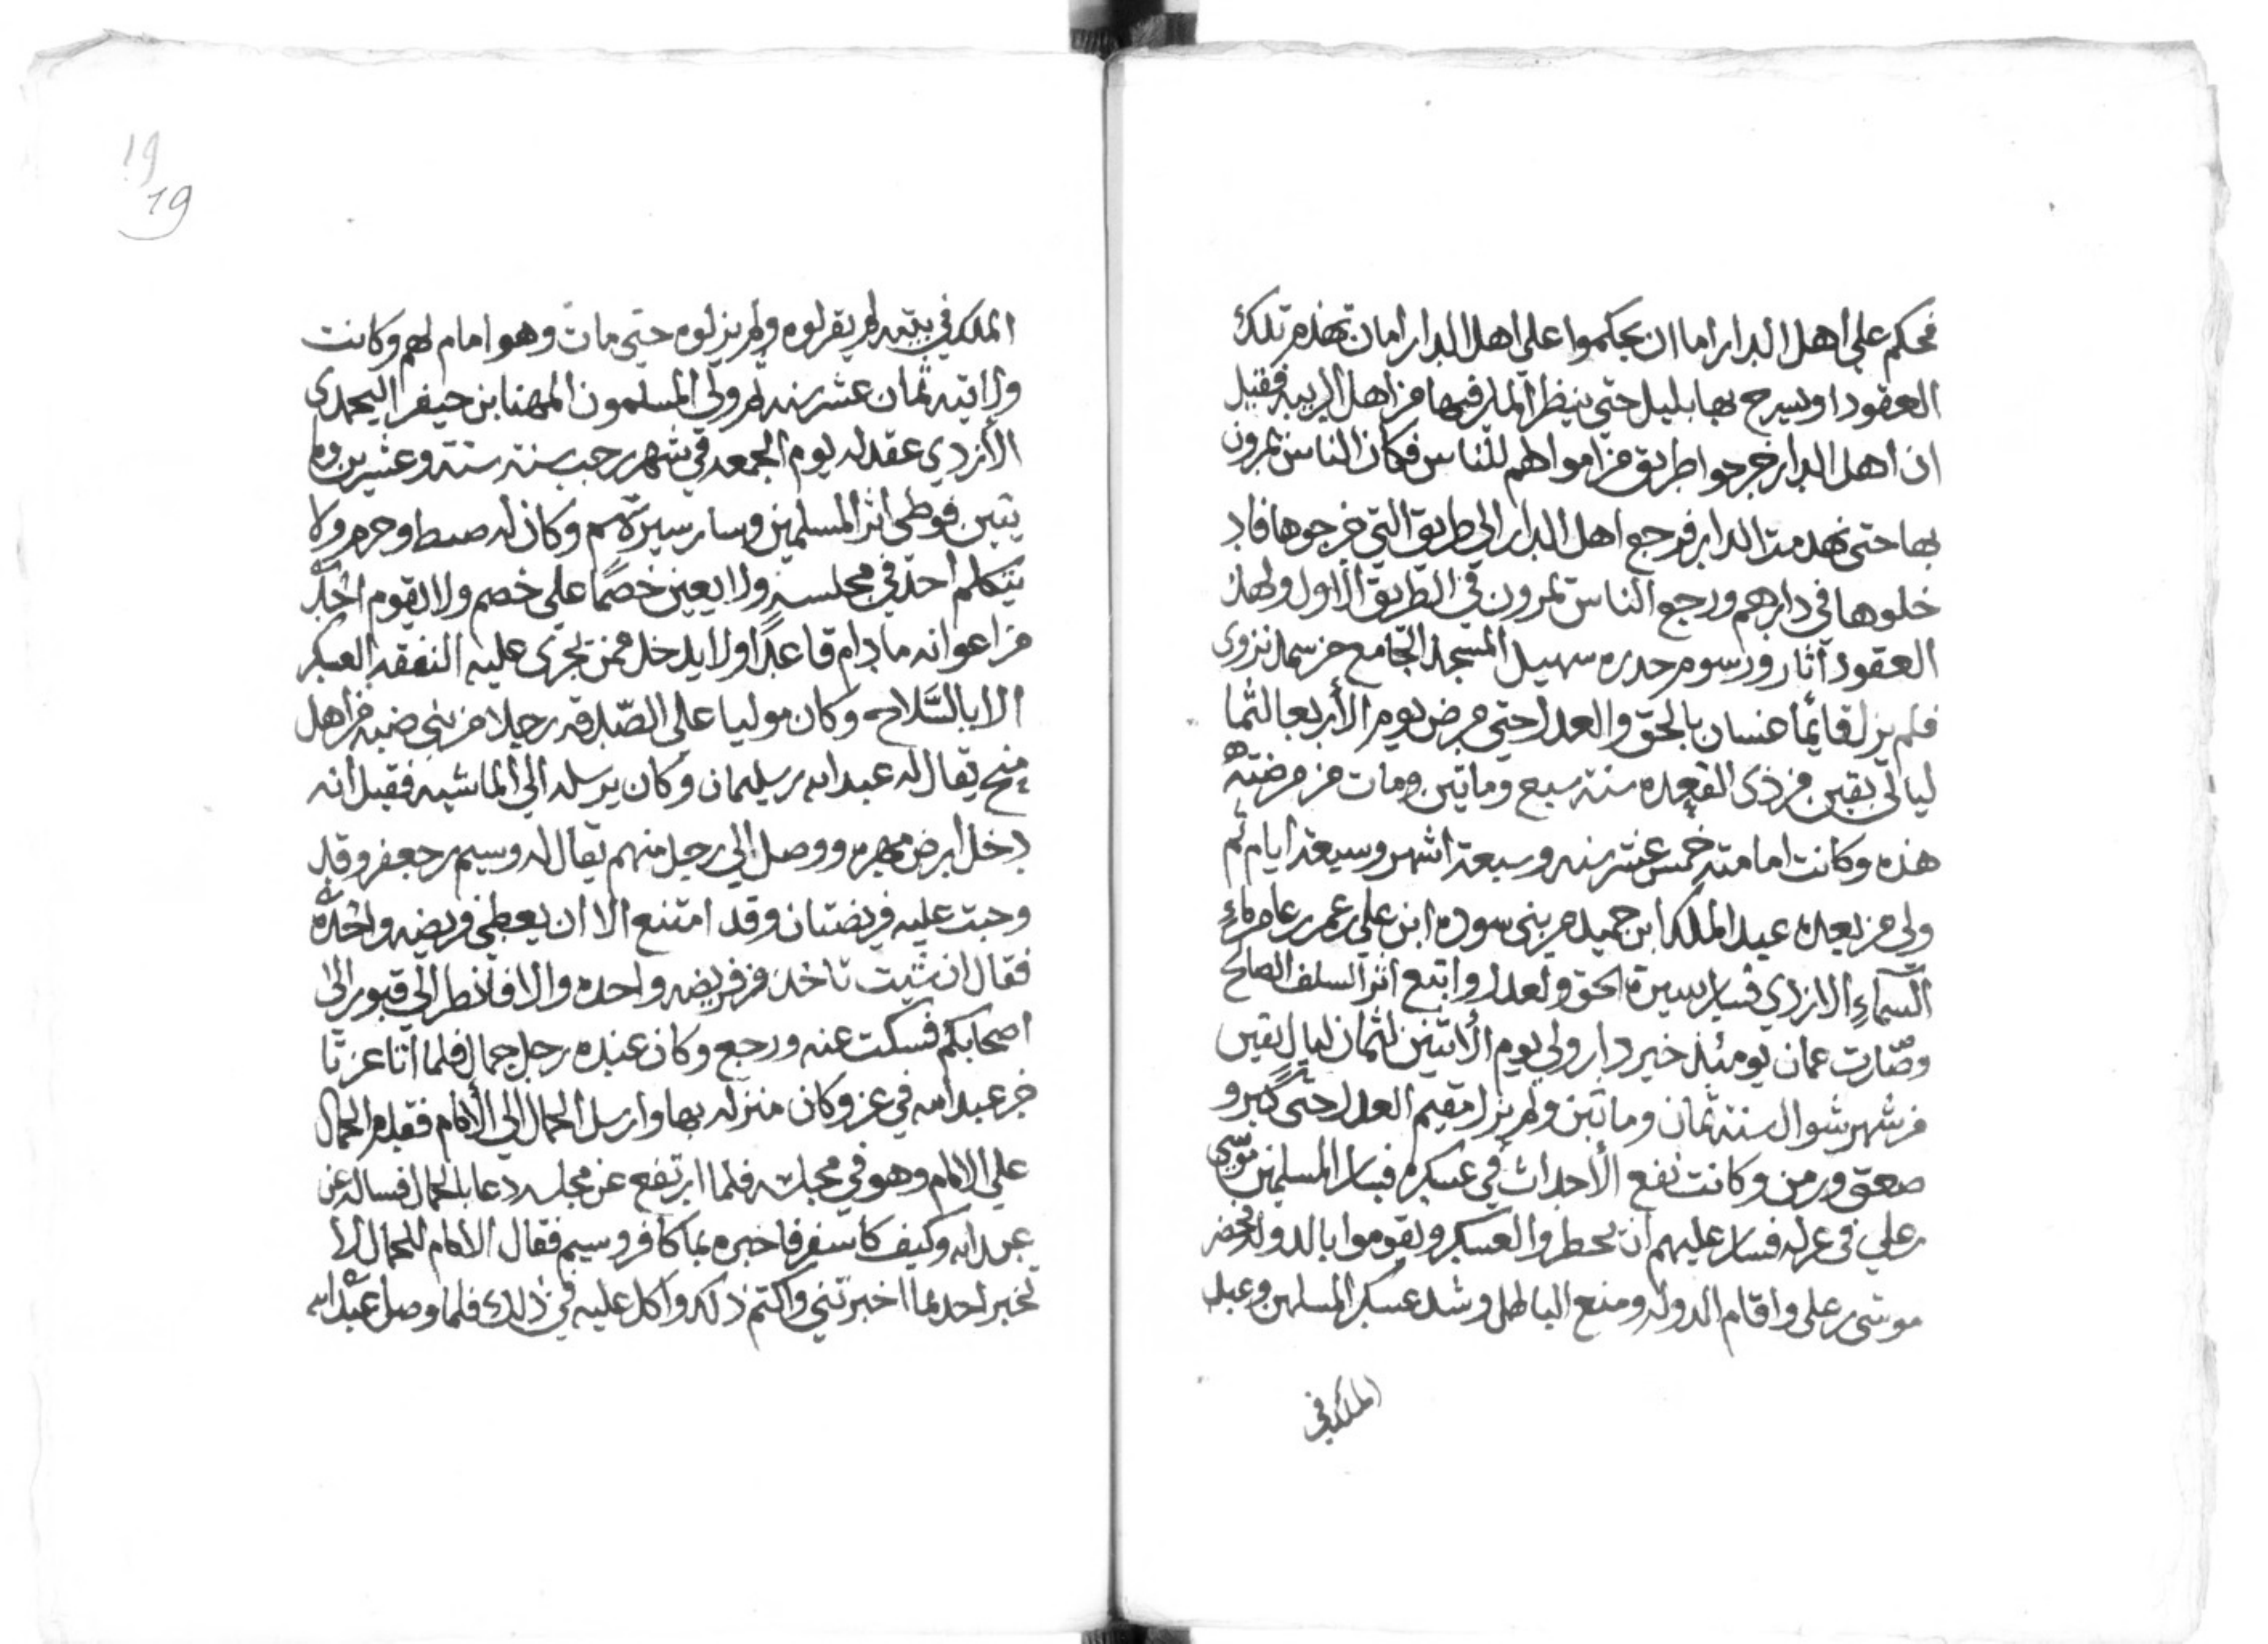 فحكم على اهل الدار اما ان يحكموا على اهل الدار اما ان تهدم تلك
العقود او يسرج بها بليل حتى ينظر المار فيها من اهل الريبه فقيل
ان اهل الدار خرجوا طريق من اموالهم للناس فكان الناس يمرون
بها حتى تهدمت الدار فرجع اهل الدار الى طريق التي خرجوها فاد
خلوها في دارهم ورجع الناس تمرون في الطريق الأول ولهذ
العقود آثار ورسوم حدره سهيل المسجد الجامع من سمد نزوى
فلم يزل قايمًا غسان بالحق والعدل حتى مرض يوم الأربعا لثما
ليالي بقين من ذي القعده سنة سبع وماتين ومات من مرضته
هذه وكانت امامته خمس عشر سنه وسبعة اشهر وسبعة ايام ثم
ولي من بعده عبد الملك ابن حميد من بني سوده ابن علي بن عمر بن عامر ماءِ
السماءِ الازدي فسار بسيرة الحق والعدل واتبع اثر السلف الصالح
وصارت عمان يومئذ خير دار ولي يوم الأثنين لثمان ليال بقين
من شهر شوال سنة ثمان وماتين ولم يزل مقيم العدل حتى كبر و
صعق وزمن وكانت تقع الأحداث في عسكره فسار المسلمين موسى
بن علي في عزله فسار عليهم ان يحطروا العسكر ويقوموا بالدوله فحضر
موسى بن علي واقام الدوله ومنع الباطل وشد عسكر المسلمين وعبد
الملك في
19
19
الملك في بيته لم يقزلوه ولم يزلوه حتى مات وهو امام لهم وكانت
ولايته ثمان عشر سنه ثم ولي المسلمون المهنا بن جيفر اليحمدي
الأزدي عقد له يوم الجمعه في شهر رجب سنة ستة وعشرين وما
يتين فوطى اثر المسلمين وسار سيرتهم وكان له ضبط وحزم ولا
يتكلم احدٌ في مجلسه ولا يعين خصمًا على خصم ولا يقوم احدٌ
من اعوانه مادام قاعدًا ولا يدخل ممن تجري عليه النفقه العسكر
الا بالسَّلاح وكان موليا على الصّدقه رجلا من بني ضبه من اهل
منح يقال له عبد الله بن سليمان وكان يرسله الى الماشيه فقيل انه
دخل ارض مهره ووصل الى رجل منهم يقال له وسيم بن جعفر وقد
وجبت عليه فريضتان وقد امتنع الا ان يعطي فريضه واحده
فقال ان شيت تاخذ من فريضه واحده والا فانظر الى قبور الى
اصحابكم فسكت عنه ورجع وكان عنده رجل جمال فلما اتا عز تا
خر عبد الله في عز وكان منزله بها وارسل الجمال الى الأمام فقدم الجمال
على الامام وهو في مجلسه فلما ارتفع عن مجلسه دعا بالجمال فساله عن
عبد الله وكيف كا سفر فاخبره بما كا فر وسيم فقال الامام للجمال لا
تخبر احد بما اخبرتني واكتم ذلك واكد عليه في ذلك فلما وصل عبد الله